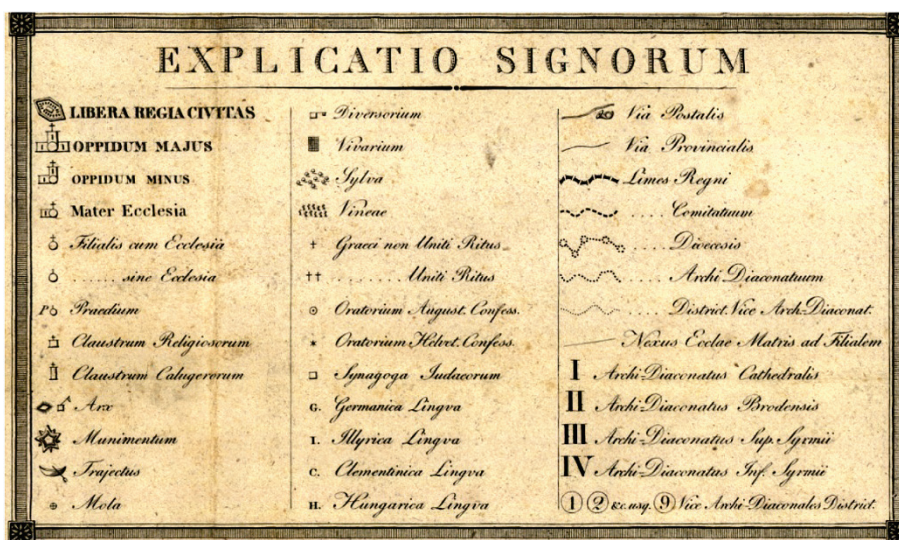 EXPLICATIO SIGNORUM
LIBERA REGIA CIVITAS
OPPIDUM MAJUS
OPPIDUM MINUS
Mater Ecclesia
Filialis cum Ecclesia
....... sine Ecclesia
P Praedium
Claustrum Religiosorum
Claustrum Calugerorum
Arx
Munimentum
Trajectus
Mola
Diversorium
Vivarium
Sylva
Vineae
Graeci non Uniti Ritus
......... Uniti Ritus
Oratorium August. Confess.
Oratorium Helvet. Confess.
Synagoga Judaeorum
G. Germanica Lingva
I. Illyrica Lingva
C. Clementinica Lingva
H. Hungarica Lingva
Via Postalis
Via Provincialis
Limes Regni
.... Comitatuum
.... Dioecesis
.... Archi Diaconatuum
.... District. Vice Arch-Diaconat.
Nexus Ecclae Matris ad Filialem
I Archi-Diaconatus Cathedralis
II Archi-Diaconatus Brodensis
III Archi-Diaconatus Sup. Syrmii
IV Archi-Diaconatus Inf. Syrmii
1 2 &c. usq. 9 Vice Archi-Diaconales District.